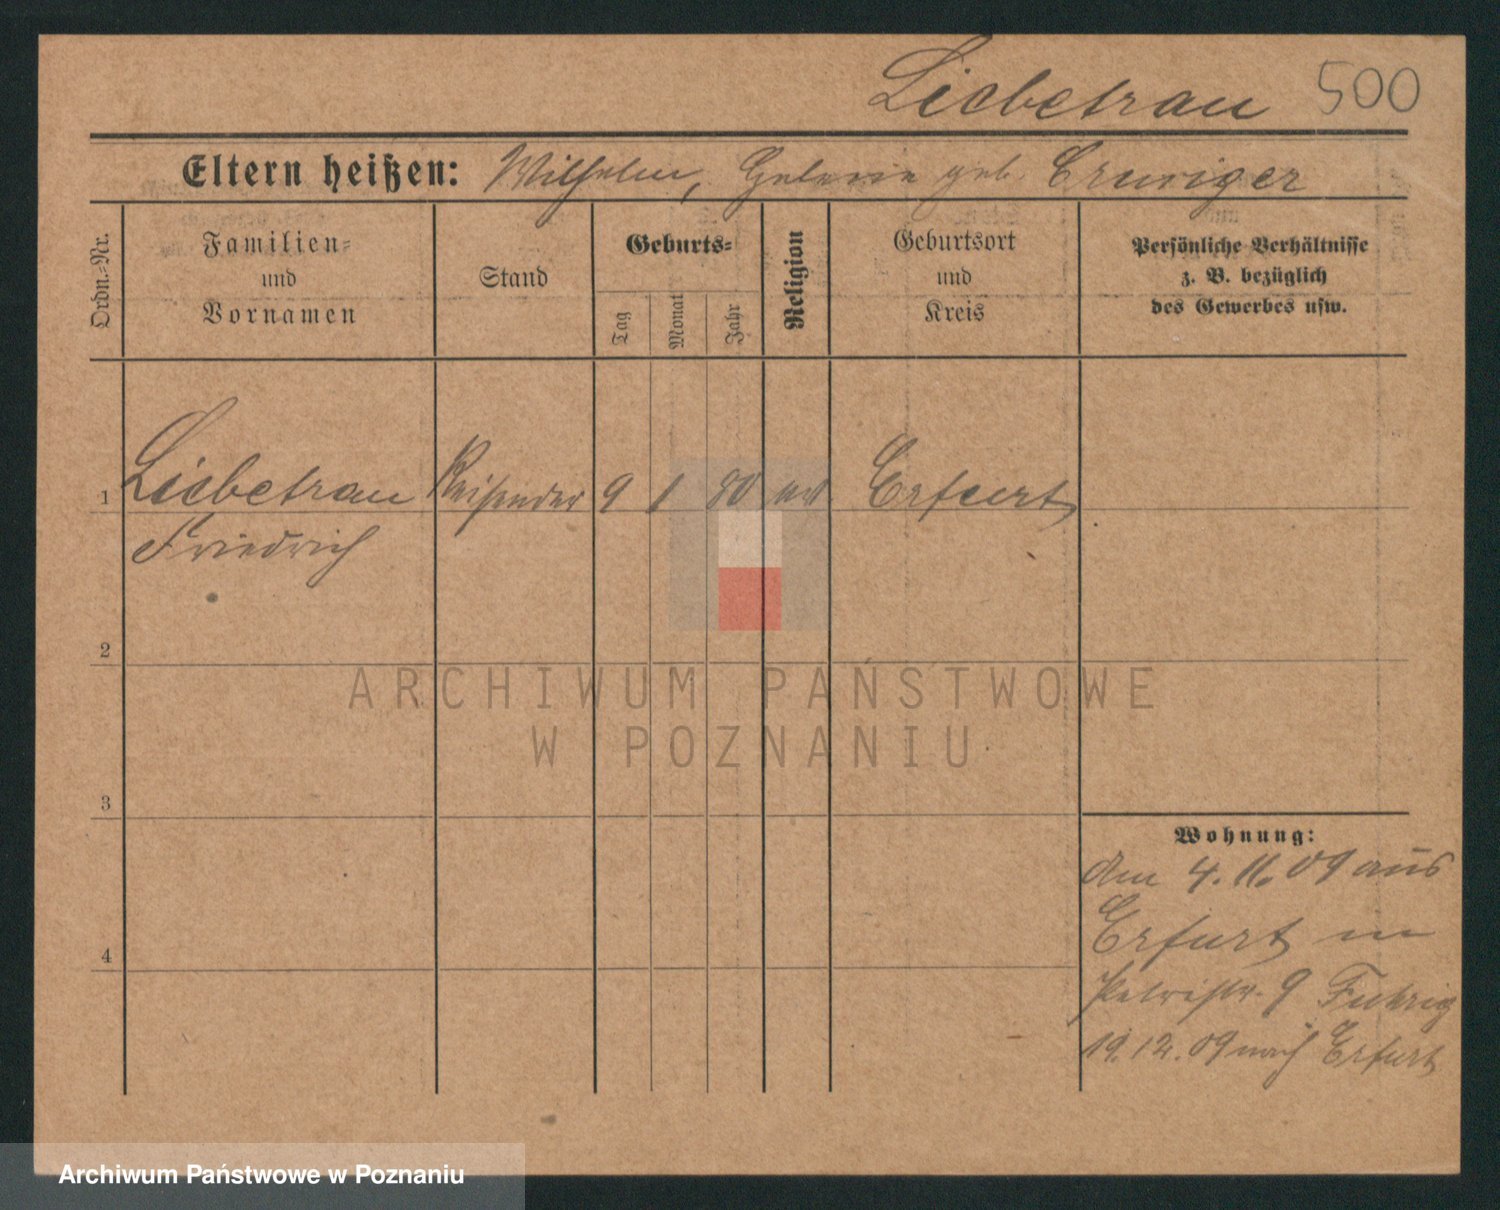 Liebetrau 500
Eltern heißen: Wilhelm, geb.
Ordn.=Nr.
Familien=
und
Vornamen
Stand
Geburts=
Tag
Monat
Jahr
Religion
Geburtsort
und
Kreis
Persönliche Verhältnisse
z. B. bezüglich
des Gewerbes usw.
1 Liebetrau Reisender 9 1 80 Erfurt
Friedrich
2
3
4
Wohnung:
Am 4. 11. 09 aus
Erfurt in
Petristr. 9
19. 12. 09 nach Erfurt
ARCHIWUM PAŃSTWOWE
W POZNANIU
Archiwum Państwowe w Poznaniu